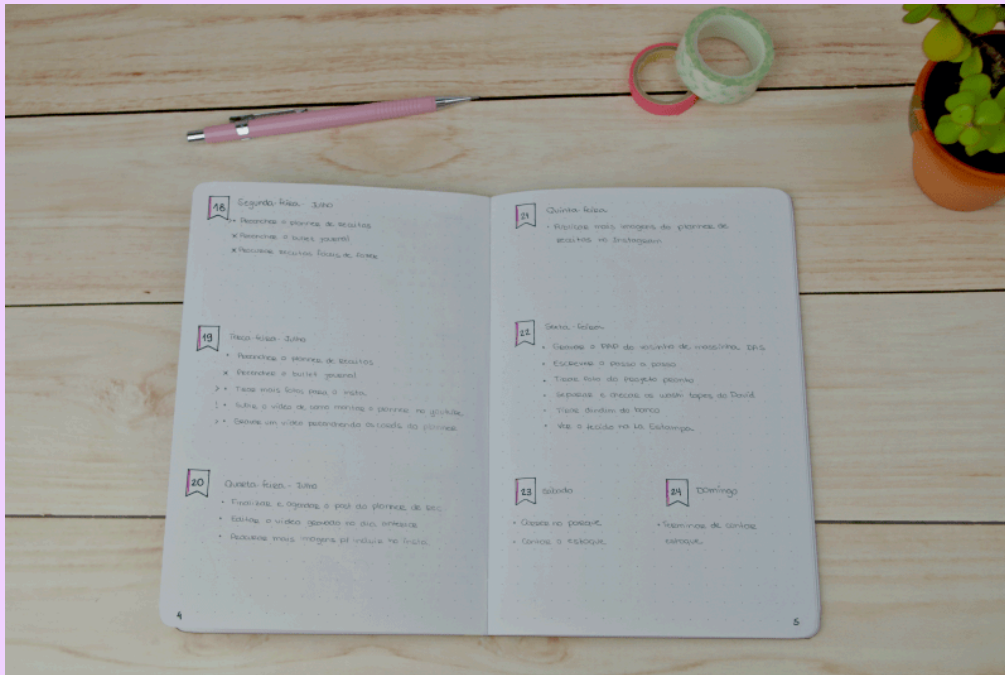 18 Segunda-feira - Julho
>• Preencher o planner de receitas
x Preencher o bullet journal
x Procurar receitas fáceis de fazer
19 Terça-feira - Julho
• Preencher o planner de receitas
x Preencher o bullet journal
>• Tirar mais fotos para o insta
! • Subir o vídeo de como montar o planner no youtube
>• Gravar um vídeo preenchendo os cards do planner
20 Quarta-feira - Julho
• Finalizar e agendar o post do planner de rec.
• Editar o vídeo gravado no dia anterior
• mais imagens p/ incluir no insta
4
21 Quinta-feira
• Publicar mais imagens do planner de
receitas no Instagram
22 Sexta-feira
• Gravar o PAP do vasinho de massinha DAS
• Escrever o passo a passo
• Tirar foto do projeto pronto
• Separar e checar as washi tapes do David
• Tirar dindim do banco
• Ver o tecido na La Estampa
23 Sábado
• no parque
• Contar o estoque
24 Domingo
• Terminar de contar
estoque
5